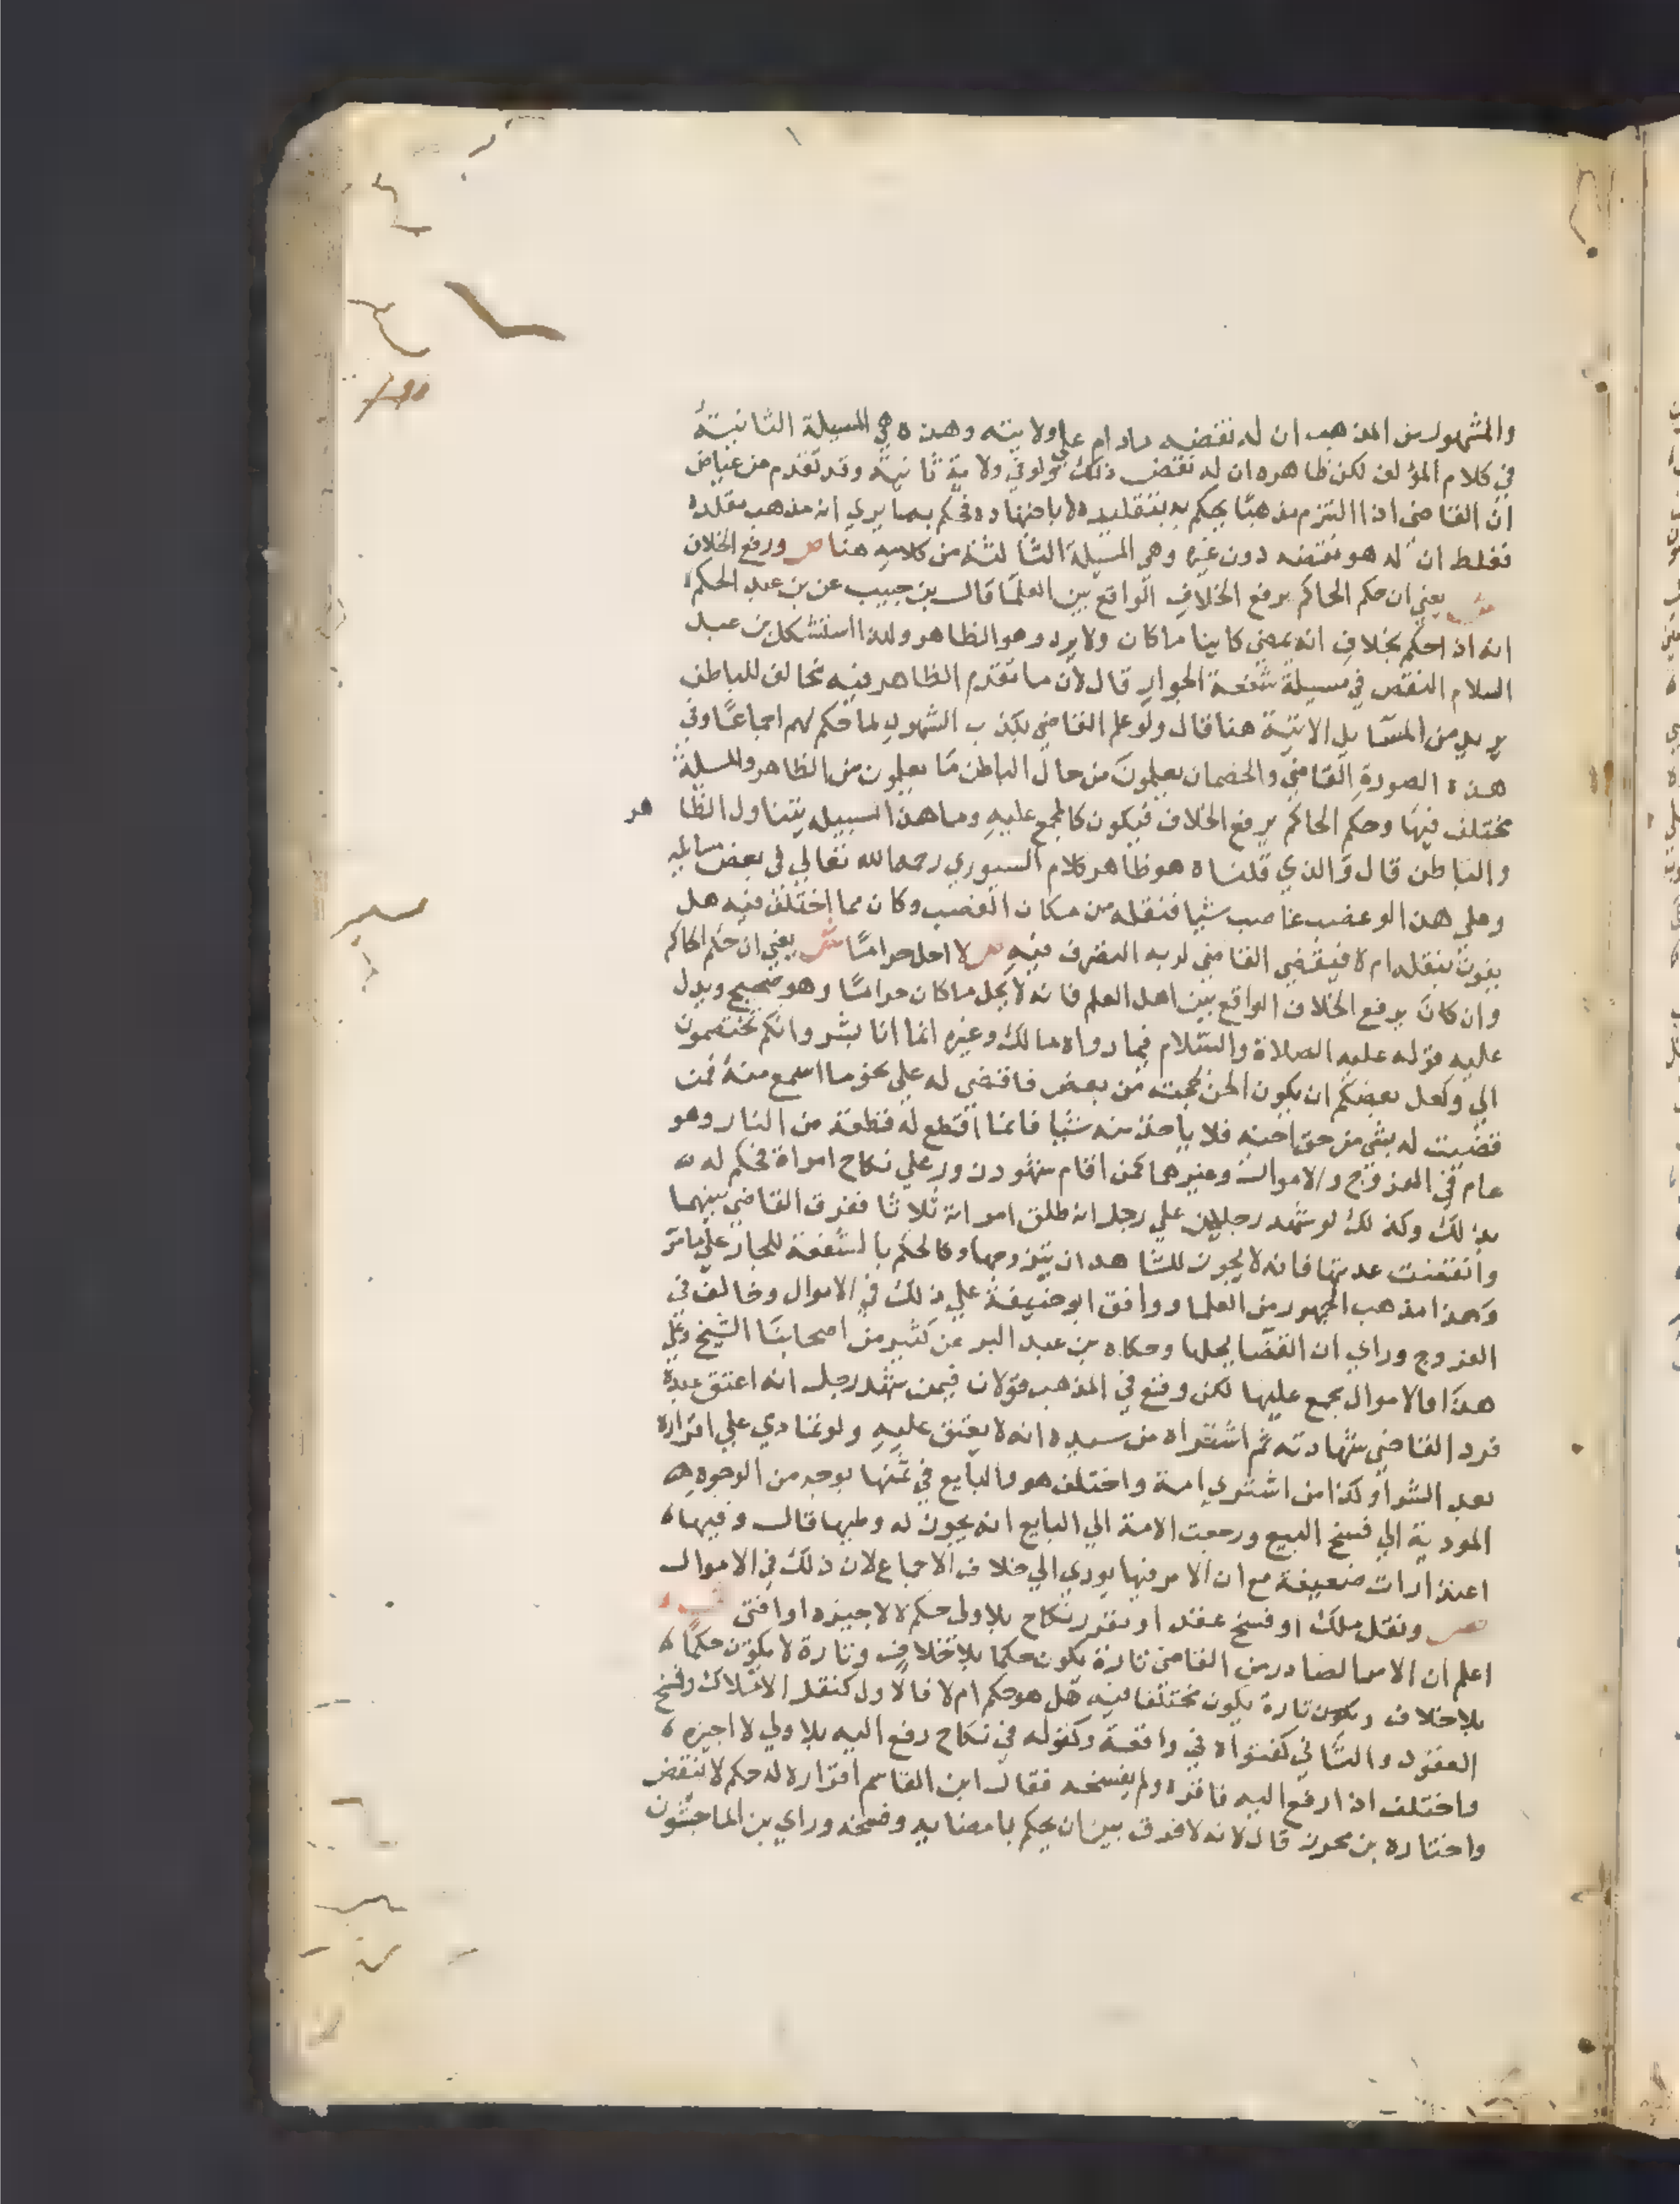 والمشهور من المذهب ان له نقضه مادام علي ولايته وهذه هي المسيلة الثانية
في كلام المؤلف لكن ظاهره ان له نقض ذلك ولوفي ولاية ثانية وقد تقدم من عياض
ان القاضي اذا التزم مذهبًا يحكم به بتقليده لا باجتهاده فحكم بما يري انه مذهب مقلده
فغلط ان له هو نقضه دون غيره وهي المسيلة الثالثة من كلامه هنا ص ورفع الخلاف
ش يعني ان حكم الحاكم يرفع الخلاف الواقع بين العلما قال بن حبيب عن بن عبد الحكم
انه اذا حكم بخلاف انه يمضي كاينا ما كان ولا يرد وهو الظاهر ولذا استشكل بن عبد
السلام النقض في مسيلة شفعة الجوار قال لان ما تقدم الظاهر فيه مخالف للباطن
يريد من المسايل الاتية هنا قال ولو علم القاضي بكذب الشهود لما حكم لهم اجماعًا وفي
هذه الصورة القاضي والخصمان يعلمون من حال الباطن ما يعلمون من الظاهر والمسلة
مختلف فيها وحكم الحاكم يرفع الخلاف فيكون كالمجمع عليه وما هذا سبيله يتناول الظا هر
والباطن قال والذي قلناه هو ظاهر كلام السيوري رحمه الله تعالي في بعض مسايله
وعلي هذا لو غصب غاصب شيا فنقله من مكان الغصب وكان مما اختلف فيه هل
يفوت بنقله ام لا فيقضي القاضي لربه التصرف فيه ص لا احل حرامًا ش يعني ان حكم الحاكم
وان كان يرفع الخلاف الواقع بين اهل العلم فانه لا يحل ما كان حرامًا وهو صحيح ويدل
عليه قوله عليه الصلاة والسلام فيما رواه مالك وغيره انما انا بشر وانكم تختصمون
الي ولعل بعضكم ان يكون الحن بحجته من بعض فاقضي له علي نحو ما اسمع منه فمن
قضيت له بشي من حق اخيه فلا ياخذ منه شيا فانما اقتطع له قطعة من النار وهو
عام في الفروج والاموال وغيرهما كمن اقام شهود زور علي نكاح امراة فحكم له
بذلك وكذلك لو شهد رجلان علي رجل انه طلق امراته ثلاثا ففرق القاضي بينهما
وانقضت عدتها فانه لا يجوز للشاهد ان يتزوجها وكالحكم بالشفعة للجار علي ما مر
وهذا مذهب الجمهور من العلما ووافق ابو حنيفة علي ذلك في الاموال وخالف في
الفروج وراي ان القضا يحلها وحكاه بن عبد البر عن كثير من اصحابنا الشيخ وعلي
هذا فالاموال مجمع عليها لكن وقع في المذهب قولان فيمن شهد رجل انه اعتق عبده
فرد القاضي شهادته ثم اشتراه من سيده انه لا يعتق عليه ولو تمادي علي اقراره
بعد الشرا وكذا من اشتري امة واختلف هو والبايع في ثمنها بوجه من الوجوه
المودية الي فسخ البيع ورجعت الامة الي البايع انه يجوز له وطيها قال وفيها
اعتذارات ضعيفة مع ان الامر فيها يودي الي خلاف الاجماع لان ذلك في الاموال
ص ونقل ملك اوفسخ عقد او تقرر نكاح بلا ولي حكم لا لا اجيزه او افتي
اعلم ان الامر الصادر من القاضي تارة يكون حكما بلا خلاف وتارة لا يكون حكمًا
بلا خلاف وتارة يكون مختلفا فيه هل هو حكم ام لا فالاول كنقل الاملاك وفسخ
العقود والثاني كفتواه في واقعة وكقوله في نكاح رفع اليه بلا ولي لا اجيزه
واختلف اذا رفع اليه فاقره ولم يفسخه فقال ابن القاسم اقراره له حكم لا ينقض
واختاره بن محرز قال لانه لا فرق بين ان يحكم بامضايه وفسخه وراي بن الماجشون